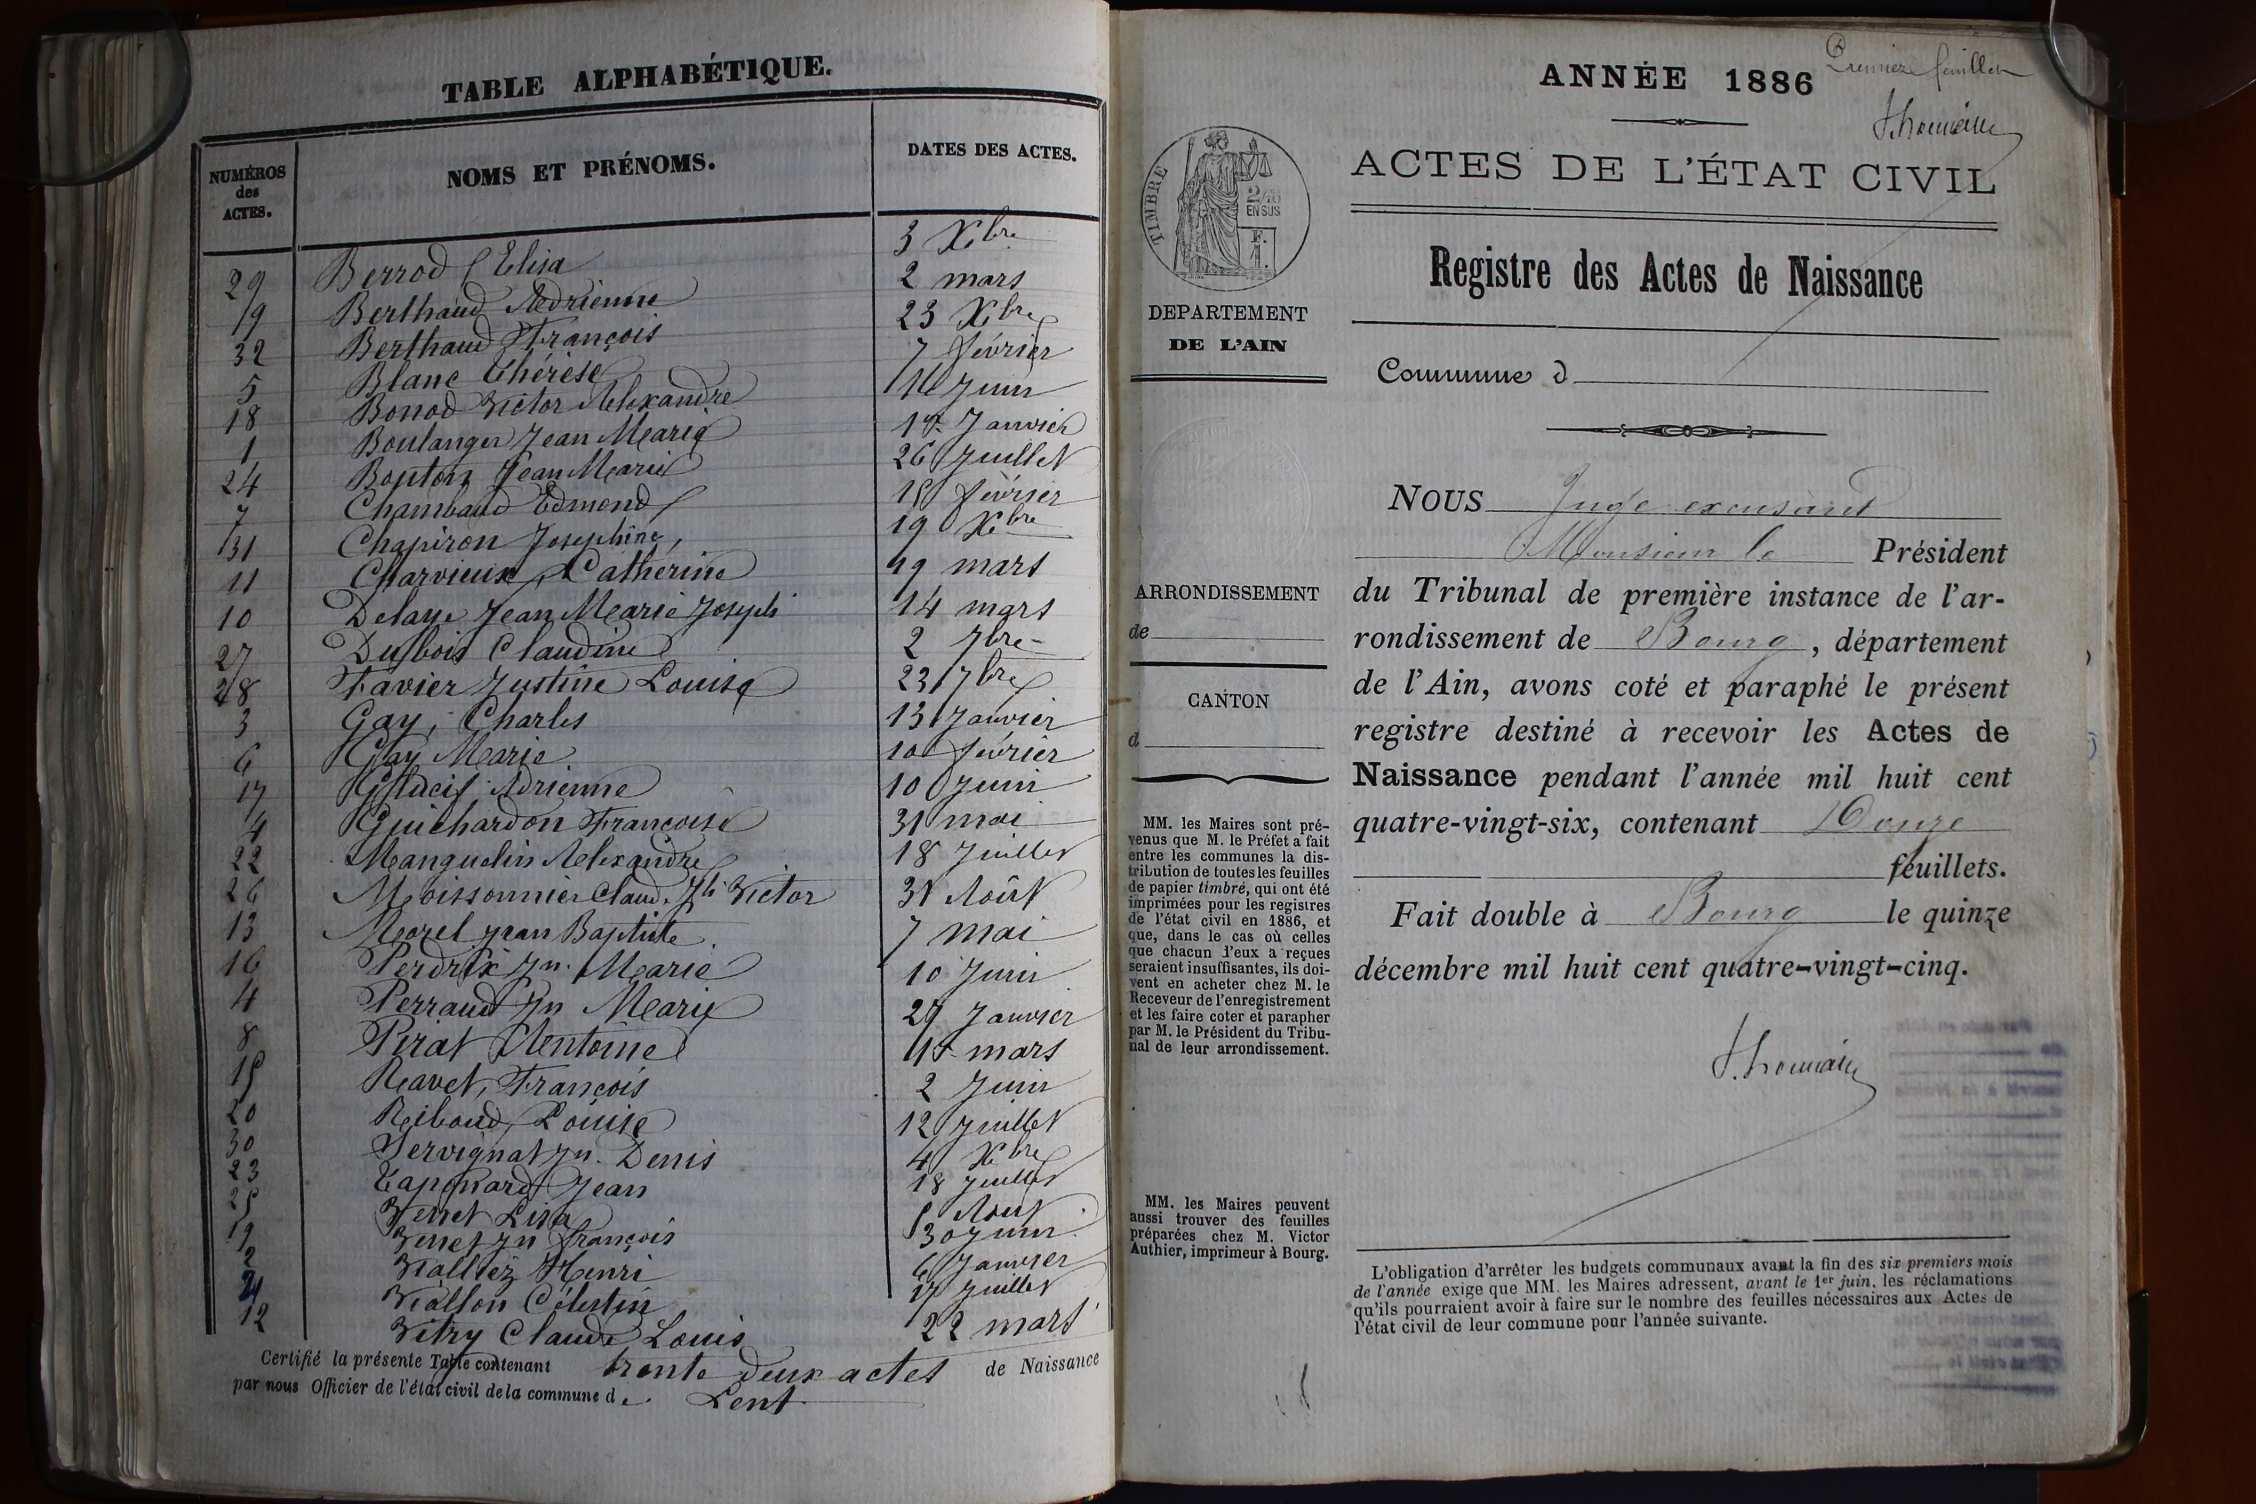 TABLE ALPHABÉTIQUE.
NUMÉROS des ACTES.
NOMS ET PRÉNOMS.
DATES DES ACTES.
29 Berrod Elisa 3 Xbre
9 Berthaud Adrienne 2 mars
32 Berthaud François 23 Xbre
5 Blanc Thérèse 7 février
18 Bonod Victor Alexandre Juin
1 Boulanger Jean Marie Janvier
24 Bouton Jean Marie 26 Juillet
7 Chambaud Edmond 18 février
31 Chapiron Josephine, 19 Xbre
11 Charvieux, Catherine 19 mars
10 Delaye Jean Marie Joseph 14 mars
27 Dubois Claudine 2 7bre
28 Favier Justine Louise 23 7bre
3 Gay, Charles 13 Janvier
6 Gay Marie 10 février
17 Adrienne 10 Juin
4 Guichardon Françoise 31 mai
22 Manguelin Alexandre 18 Juillet
26 Moissonnier Claud. Victor 31 Août
13 Morel Jean Baptiste 7 mai
16 Perdrix Jn. Marie 10 Juin
4 Perraud Jn Marie 27 Janvier
8 Pirat Antoine mars
15 Ravet, François 2 Juin
20 Riboud, Louise 12 Juillet
30 Servignat Jn. Denis 4 Xbre
23 Taponard Jean 18 Juillet
25 Venet Août
19 Venet Jn François 30 Juin
2 Henri 6 Janvier
21 Viallon Célestin 17 Juillet
12 Vitry Claude Louis 22 mars
Certifié la présente Table contenant trente deux actes de Naissance
par nous Officier de l'état civil de la commune de Lent
Premier feuillet
ANNÉE 1886
ACTES DE L'ÉTAT CIVIL
TIMBRE
2/10
EN SUS
F.
1.
Registre des Actes de Naissance
DEPARTEMENT
DE L'AIN
Commune d
NOUS Juge
Monsieur le Président
du Tribunal de première instance de l'ar-
rondissement de Bourg, département
de l'Ain, avons coté et paraphé le présent
registre destiné à recevoir les Actes de
Naissance pendant l'année mil huit cent
quatre-vingt-six, contenant Douze
feuillets.
Fait double à Bourg le quinze
décembre mil huit cent quatre-vingt-cinq.
ARRONDISSEMENT
de
CANTON
d
MM. les Maires sont pré-
venus que M. le Préfet a fait
entre les communes la dis-
tribution de toutes les feuilles
de papier timbré, qui ont été
imprimées pour les registres
de l'état civil en 1886, et
que, dans le cas où celles
que chacun d'eux a reçues
seraient insuffisantes, ils doi-
vent en acheter chez M. le
Receveur de l'enregistrement
et les faire coter et parapher
par M. le Président du Tribu-
nal de leur arrondissement.
MM. les Maires peuvent
aussi trouver des feuilles
préparées chez M. Victor
Authier, imprimeur à Bourg.
L'obligation d'arrêter les budgets communaux avant la fin des six premiers mois
de l'année exige que MM. les Maires adressent, avant le 1er juin, les réclamations
qu'ils pourraient avoir à faire sur le nombre des feuilles nécessaires aux Actes de
l'état civil de leur commune pour l'année suivante.